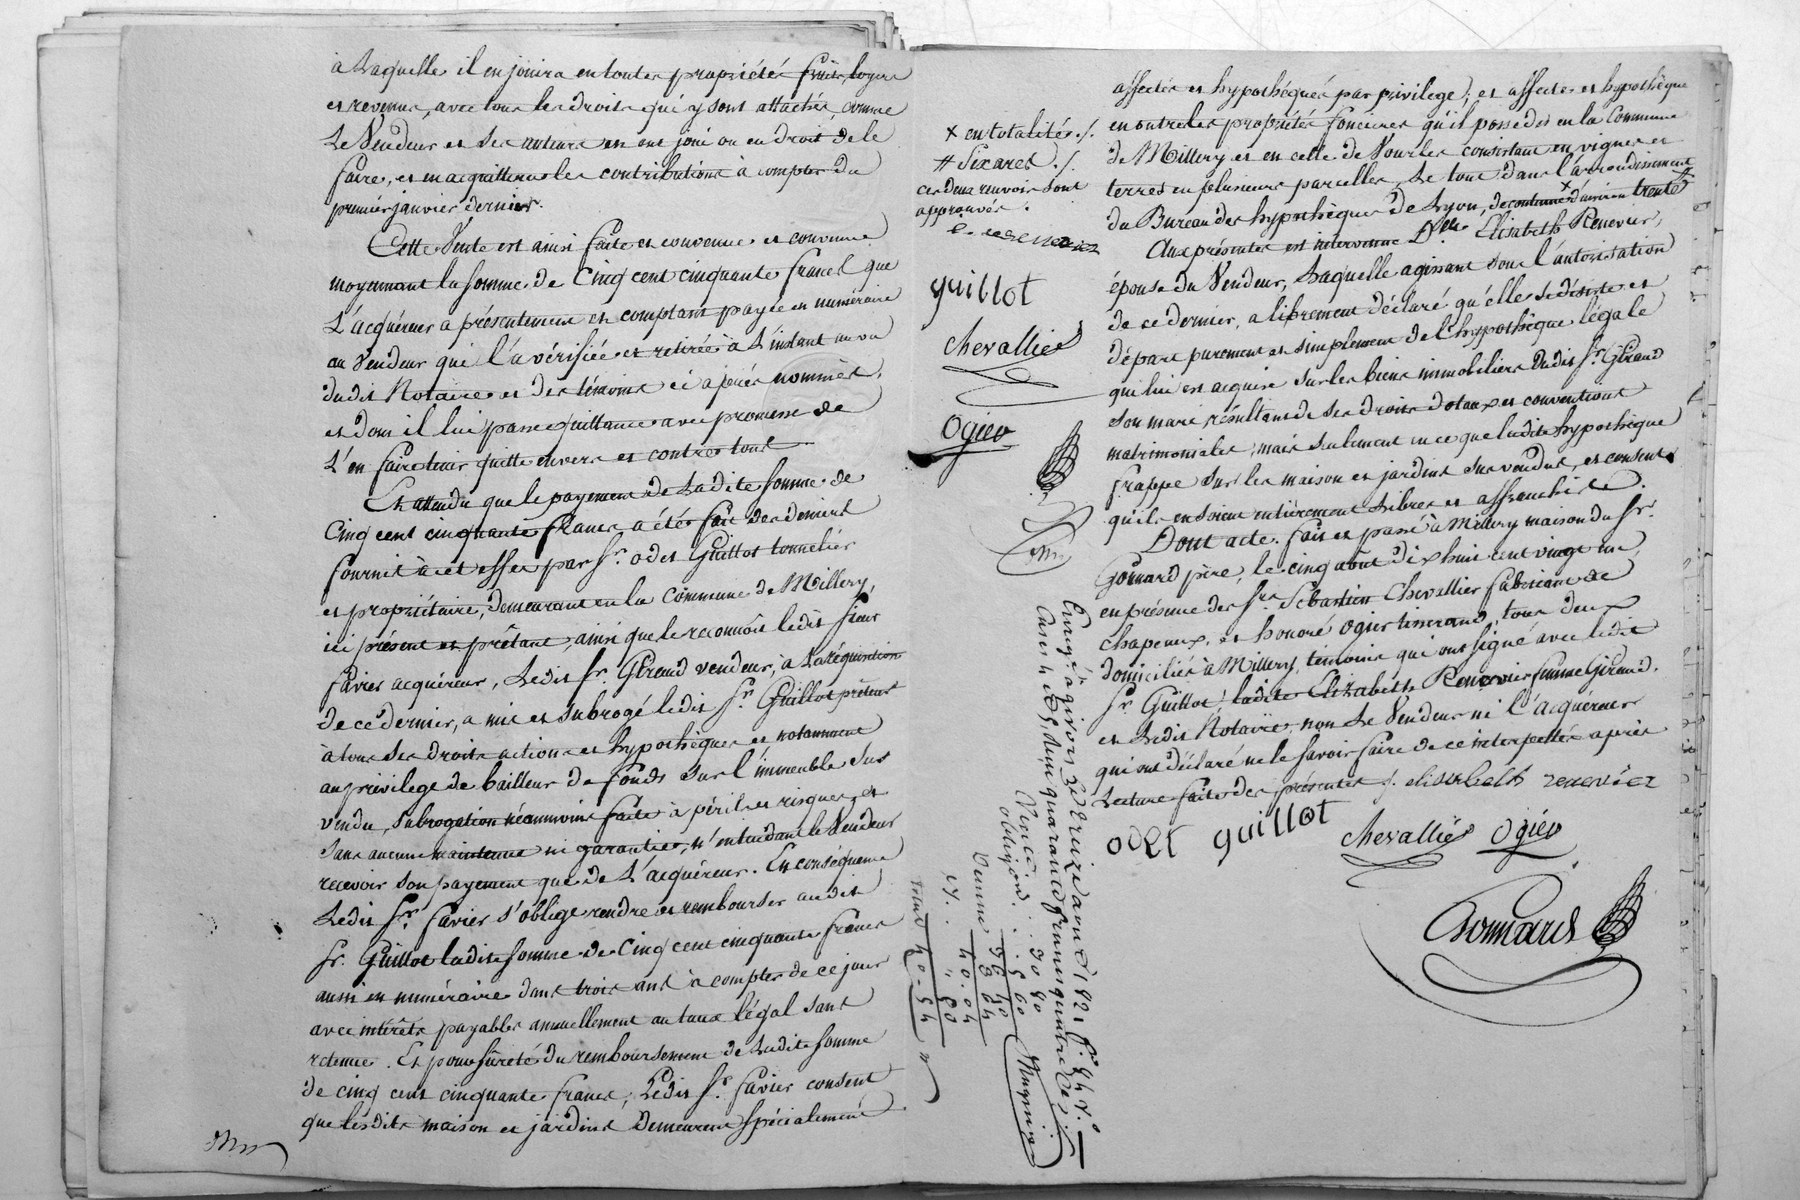 à laquelle il en jouira en toute propriété fruits, loyers
et revenus, avec tous les droits qui y sont attachés, comme
Le Vendeur et ses auteurs en ont joui ou eu droit de le
faire, et en acquittera les contributions à compter du
premier janvier dernier.
Cette Vente est ainsi faite et convenue et convenue
moyennant la somme de Cinq cent cinquante francs que
L'acquéreur a présentement et comptant payée en numéraire
au Vendeur qui l'a vérifiée et retirée à l'instant au vu
dudit Notaire et des témoins ci après nommés,
et dont il lui passe quittance avec promesse de
L'en faire tenir quitte envers et contre tous
Et attendu que le payement de Ladite somme de
Cinq cent cinquante francs a été fait des deniers
fournis à cet effet par Sr. odet Guillot tonnelier
et propriétaire, demeurant en la Commune de Millery,
ici présent et prêtant, ainsi que le reconnoit ledit sieur
favier acquéreur, Ledit Sr. Giraud vendeur, à la réquisition
de ce dernier, a mis et subrogé ledit Sr. Guillot prêteur
à tous ses droits actions et hypothèques et notamment
au privilege de bailleur de fonds sur l'immeuble sus
vendu, subrogation néanmoins faite à périls et risques, et
sans aucune maintenue ni garantie, n'entendant le Vendeur
recevoir son payement que de L'acquéreur. En conséquence
Ledit Sr. favier s'oblige rendre et rembourser audit
Sr. Guillot ladite somme de Cinq cent cinquante francs
aussi en numéraire dans trois ans à compter de ce jour
avec intérêts payables annuellement au taux légal sans
retenue. Et pour sûreté du remboursement de Ladite somme
de cinq cent cinquante francs, Ledit Sr. favier consent
que lesdits maison et jardins Demeurent spécialement
× en totalité ./.
# Six ares ./.
ces deux renvois sont
approuvés.
e. renevier
guillot
Chevallier
Ogier
affectés et hypothéqués par privilege, et affecte et hypothèque
en outre les propriétés foncieres qu'il possede en la Commune
de Millery et en celle de Vourles consistant en vignes et
terres en plusieurs parcelles, Le tout dans l'arrondissement
du Bureau des hypothèques de Lyon, de contenue × d'environ trente #
Aux présentes est intervenue Dlle. Elisabeth Renevier,
épouse du Vendeur, Laquelle agissant sous l'autorisation
de ce dernier, a librement déclaré qu'elle se désiste et
départ purement et simplement de l'hypothèque légale
qui lui est acquise sur les biens immobiliers dudit Sr. Giraud
son mari résultant de ses droits dotaux et conventions
matrimoniales, mais seulement en ce que ladite hypothèque
frappe sur les maison et jardins sus vendus, et consent
qu'ils en soient entièrement libres et affranchis.
Dont acte. fait et passé à Millery maison du Sr.
Gonnard père, le cinq août dix huit cent vingt un,
en présence des Srs. Sébastien Chevallier fabricant de
chapeaux, et honoré Ogier tisserand, tous deux
domiciliés à Millery, témoins qui ont signé avec ledit
Sr. Guillot, ladite Elizabeth Renevier femme Giraud,
et Ledit Notaire, non Le Vendeur ni L'acquéreur
qui ont déclaré ne le savoir faire de ce interpellés après
Lecture faite des présentes ./. elisabeth renevier
odet guillot Chevallier Ogier
Gonnard
Enregé. à givors le treize août 1821 fo. 84 Vo.